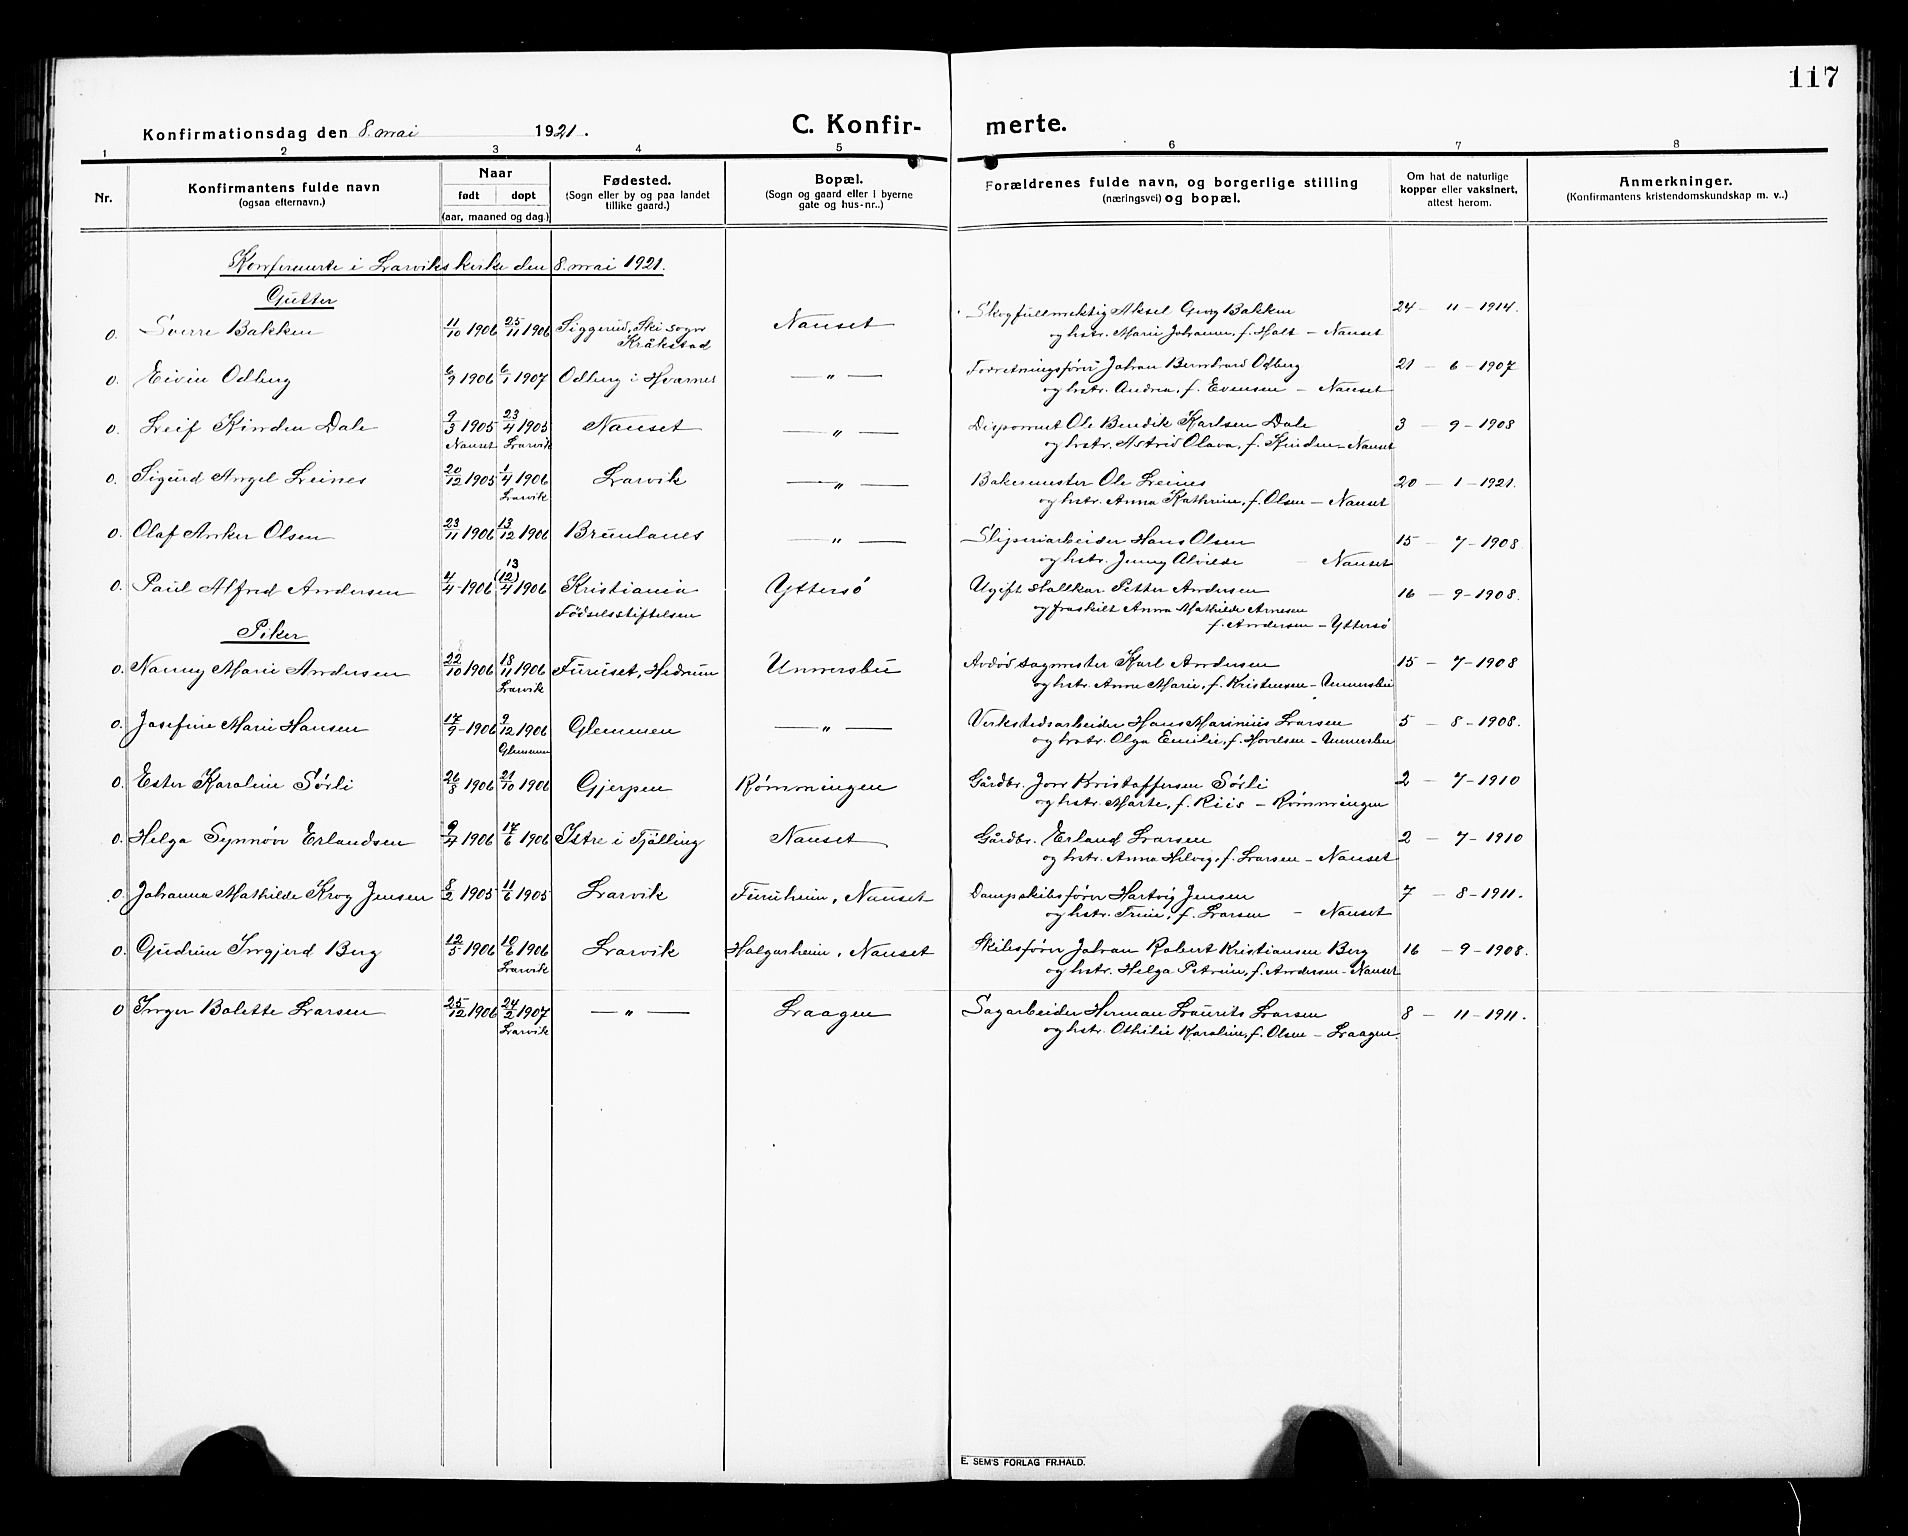 117
Konfirmationsdag den 8. mai 1921.
C. Konfirmerte.
1 2 3 4 5 6 7 8
Nr.
Konfirmantens fulde navn
(ogsaa efternavn.)
Naar
født døpt
(aar, maaned og dag.)
Fødested.
(Sogn eller by og paa landet
tillike gaard.)
Bopæl.
(Sogn og gaard eller i byerne
gate og hus-nr..)
Forældrenes fulde navn, og borgerlige stilling
(næringsvei) og bopæl.
Om hat de naturlige
kopper eller vaksinert,
attest herom.
Anmerkninger.
(Konfirmantens kristendomskundskap m. v..)
Konfirmerte i Larviks kirke den 8. mai 1921.
Gutter
o. Sverre Bakken 11/10 1906 25/11 1906 Siggerud, Ski sogn Nanset Skogfullmektig Aksel Georg Bakken 24 – 11 – 1914.
Kråkstad og hstr. Marie Johanne, f. Holt – Nanset
o. Eivin Odberg 6/9 1906 6/1 1907 Odberg i Hvarnes — " — Forretningsfører Johan Bernhard Odberg 21 – 6 – 1907
og hstr. Andrea, f. Evensen – Nanset
o. Leif Kinden Dale 9/3 1905 23/4 1905 Nanset — " — Disponent Ole Bendik Karlsen Dale 3 – 9 – 1908
Nanset Larvik og hstr. Astrid Olava, f. Kinden – Nanset
o. Sigurd Angel Leines 20/12 1905 1/4 1906 Larvik — " — Bakermester Ole Leines 20 – 1 – 1921.
Larvik og hstr. Anna Kathrine, f. Olsen – Nanset
o. Olaf Anker Olsen 23/11 1906 13/12 1906 Brunlanes — " — Sliperiarbeider Hans Olsen 15 – 7 – 1908
og hstr. Jenny Alvilde – Nanset
o. Paul Alfred Andersen 4/4 1906 13 (12)/4 1906 Kristiania Yttersö Ugift Hallkar Petter Andersen 16 – 9 – 1908.
Födselsstiftelsen og fraskilt Anna Mathilde Arnesen
f. Andersen – Yttersö
Piker
o. Nanny Marie Andersen 22/10 1906 18/11 1906 Furuset, Hedrum Unnersbu Avdöd sagmester Karl Andersen 15 – 7 – 1908
Larvik og hstr. Anne Marie, f. Kristensen – Unnersbu
o. Josefine Marie Hansen 17/9 1906 9/12 1906 Glemmen — " — Verkstedsarbeider Hans Marinius Larsen 5 – 8 – 1908.
Glemmen og hstr. Olga Emilie, f. – Unnersbu
o. Ester Karoline Sörli 26/8 1906 21/10 1906 Gjerpen Rømmingen Gårdbr. Jon Kristoffersen Sörli 2 – 7 – 1910
og hstr. Marte, f. Riis – Rømmingen
o. Helga Synnöv Erlandsen 9/4 1906 17/6 1906 Istre i Tjölling Nanset Gårdbr. Erland Larsen 2 – 7 – 1910
og hstr. Anna Helvig, f. Larsen – Nanset
o. Johanna Mathilde Krog Jensen 8/2 1905 11/6 1905 Larvik Furuheim, Nanset Dampskibsförer Hartvig Jensen 7 – 8 – 1911.
og hstr. Trine, f. Larsen – Nanset
o. Gudrun Ingjerd Berg 12/5 1906 18/6 1906 Larvik Halgarheim, Nanset Skibsförer Johan Robert Kristiansen Berg 16 – 9 – 1908.
Larvik og hstr. Helga Petrine, f. Andersen – Nanset
o Inger Bolette Larsen 25/12 1906 24/2 1907 — " — Laagen Sagarbeider Herman Laurits Larsen 8 – 11 – 1911.
Larvik og hstr. Othilie Karoline, f. Olsen – Laagen.
E. SEM'S FORLAG FR.HALD.